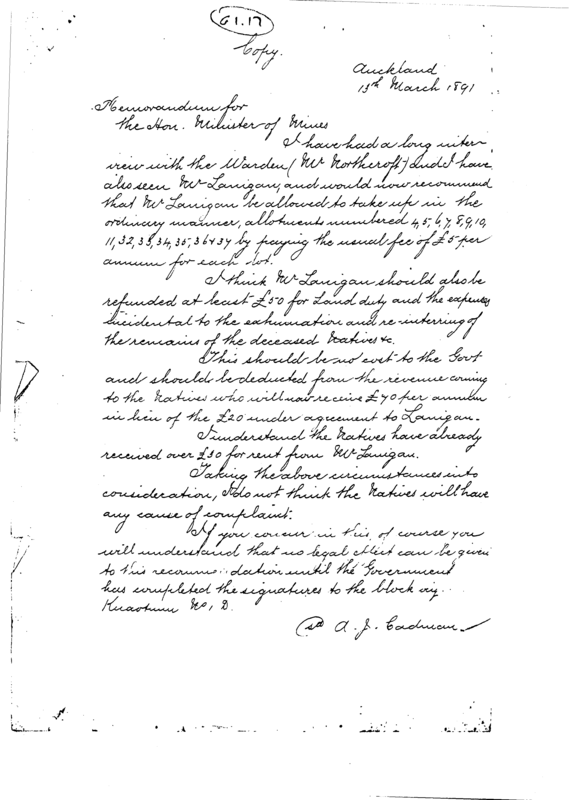 G1.17
Copy.
Auckland
13th March 1891
Memorandum for
the Hon. Minister of Mines
I have had a long inter-
view with the Warden (Mr Northcroft) and I have
also seen Mr Lanigan, and would now recommend
that Mr Lanigan be allowed to take up in the
ordinary manner, allotments numbered 4, 5, 6, 7, 8, 9, 10,
11, 32, 33, 34, 35, 36 & 37 by paying the usual fee of £5 per
annum for each lot.
I think Mr Lanigan should also be
refunded at least £50 for Land duty and the expenses
incidental to the exhumation and re-interring of
the remains of the deceased Natives &c.
This should be no cost to the Govt
and should be deducted from the revenue coming
to the Natives who will now receive £70 per annum
in lieu of the £20 under agreement to Lanigan.
I understand the Natives have already
received over £30 for rent from Mr Lanigan.
Taking the above circumstances into
consideration, I do not think the Natives will have
any cause of complaint.
If you concur in this, of course you
will understand that no legal effect can be given
to this recomm dation until the Government
has completed the signatures to the block viz.
Kuaotunu No, 1 D.
(sd A. J. Cadman